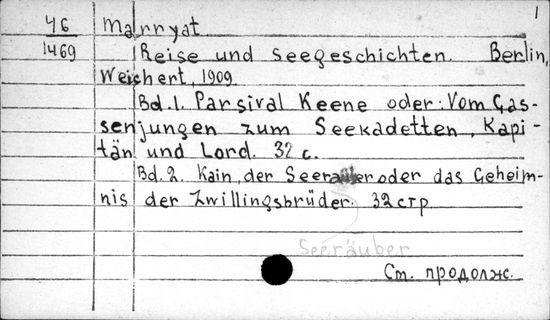 1
46 Marryat
1469 Reise und Seegeschichten. Berlin,
Weichert, 1909.
Bd. 1. Parsival Keene oder: Vom Gas-
senjungen zum Seekadetten, Kapi-
tän und Lord. 32 с.
Bd. 2. Kain, der Seeräuber oder das Geheim-
nis der Zwillingsbrüder. 32 стр.
Seeräuber
См. продолж.